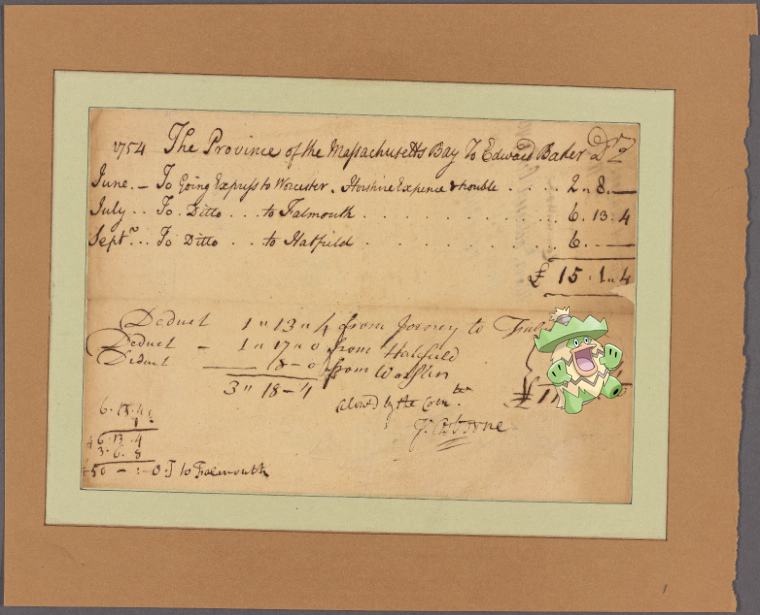 1754 The Province of the Massachusetts Bay To Edward Baker Dr
June. – To Going Express to Worcester, Horshire Expence & trouble . . . . 2 „ 8 „ —
July . . To Ditto . . . to Falmouth . . . . . . . . . 6 . 13 . 4
Septr . . . To Ditto . . to Hatfield . . . . . . . . . 6 . . —
£ 15 . 1 „ 4
Deduct 1 „ 13 „ 4 from Jorney to
Deduct – 1 „ 17 „ 0 from Hatfield
Deduct — 18 – 0 from
3 „ 18 – 4
£ 11
alowd by the Comtee
J. Osborne
6 . 13 . 4
3 . 6 . 8
50 – : – 0 J to Falmouth